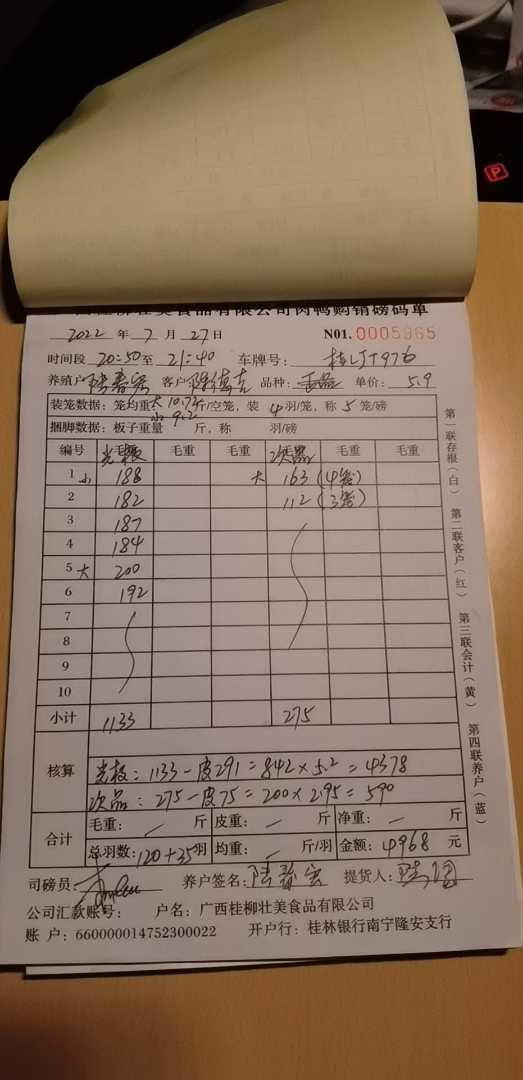 柳壮美食品有限公司肉鸭购销磅码单
2022 年 7 月 27 日 N01. 0005965
时间段 20:50 至 21:40 车牌号: 桂LJT976
养殖户 客户 品种: 单价: 5.9
装笼数据: 笼均重 大10.72 小9.2 斤/空笼, 装 4 羽/笼, 称 5 笼/磅
捆脚数据: 板子重量 斤, 称 羽/磅
编号 毛重 毛重 毛重 次品 毛重 毛重
1 小 188 大 163 (4笼)
2 182 112 (3笼)
3 187
4 184
5 大 200
6 192
7
8
9
10
小计 1133 275
核算
: 1133 - 皮291 = 842 × 5.2 = 4378
次品: 275 - 皮75 = 200 × 2.95 = 590
合计
毛重: 斤 皮重: 斤 净重: 斤
总羽数: 120+35 羽 均重: 斤/羽 金额: 4968 元
司磅员: 养户签名: 提货人:
公司汇款账号: 户名: 广西桂柳壮美食品有限公司
账 户: 660000014752300022 开户行: 桂林银行南宁隆安支行
第一联存根(白) 第二联客户(红) 第三联会计(黄) 第四联养户(蓝)
P